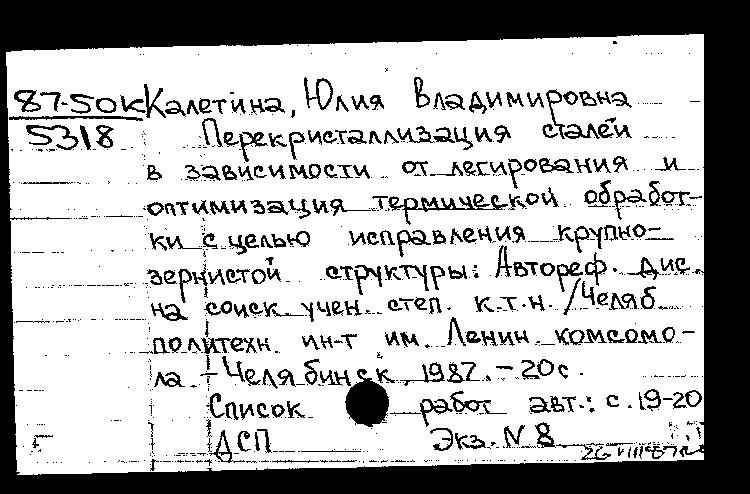 87-50К Калетина, Юлия Владимировна
5318 Перекристаллизация сталей
в зависимости от легирования и
оптимизация термической обработ-
ки с целью исправления крупно-
зернистой структуры: Автореф. дис.
на соиск. учен. степ. к.т.н. /Челяб.
политехн. ин-т им. Ленин. комсомо-
ла. - Челябинск, 1987. - 20 с.
Список работ авт.: с. 19-20
ДСП Экз. N 8.